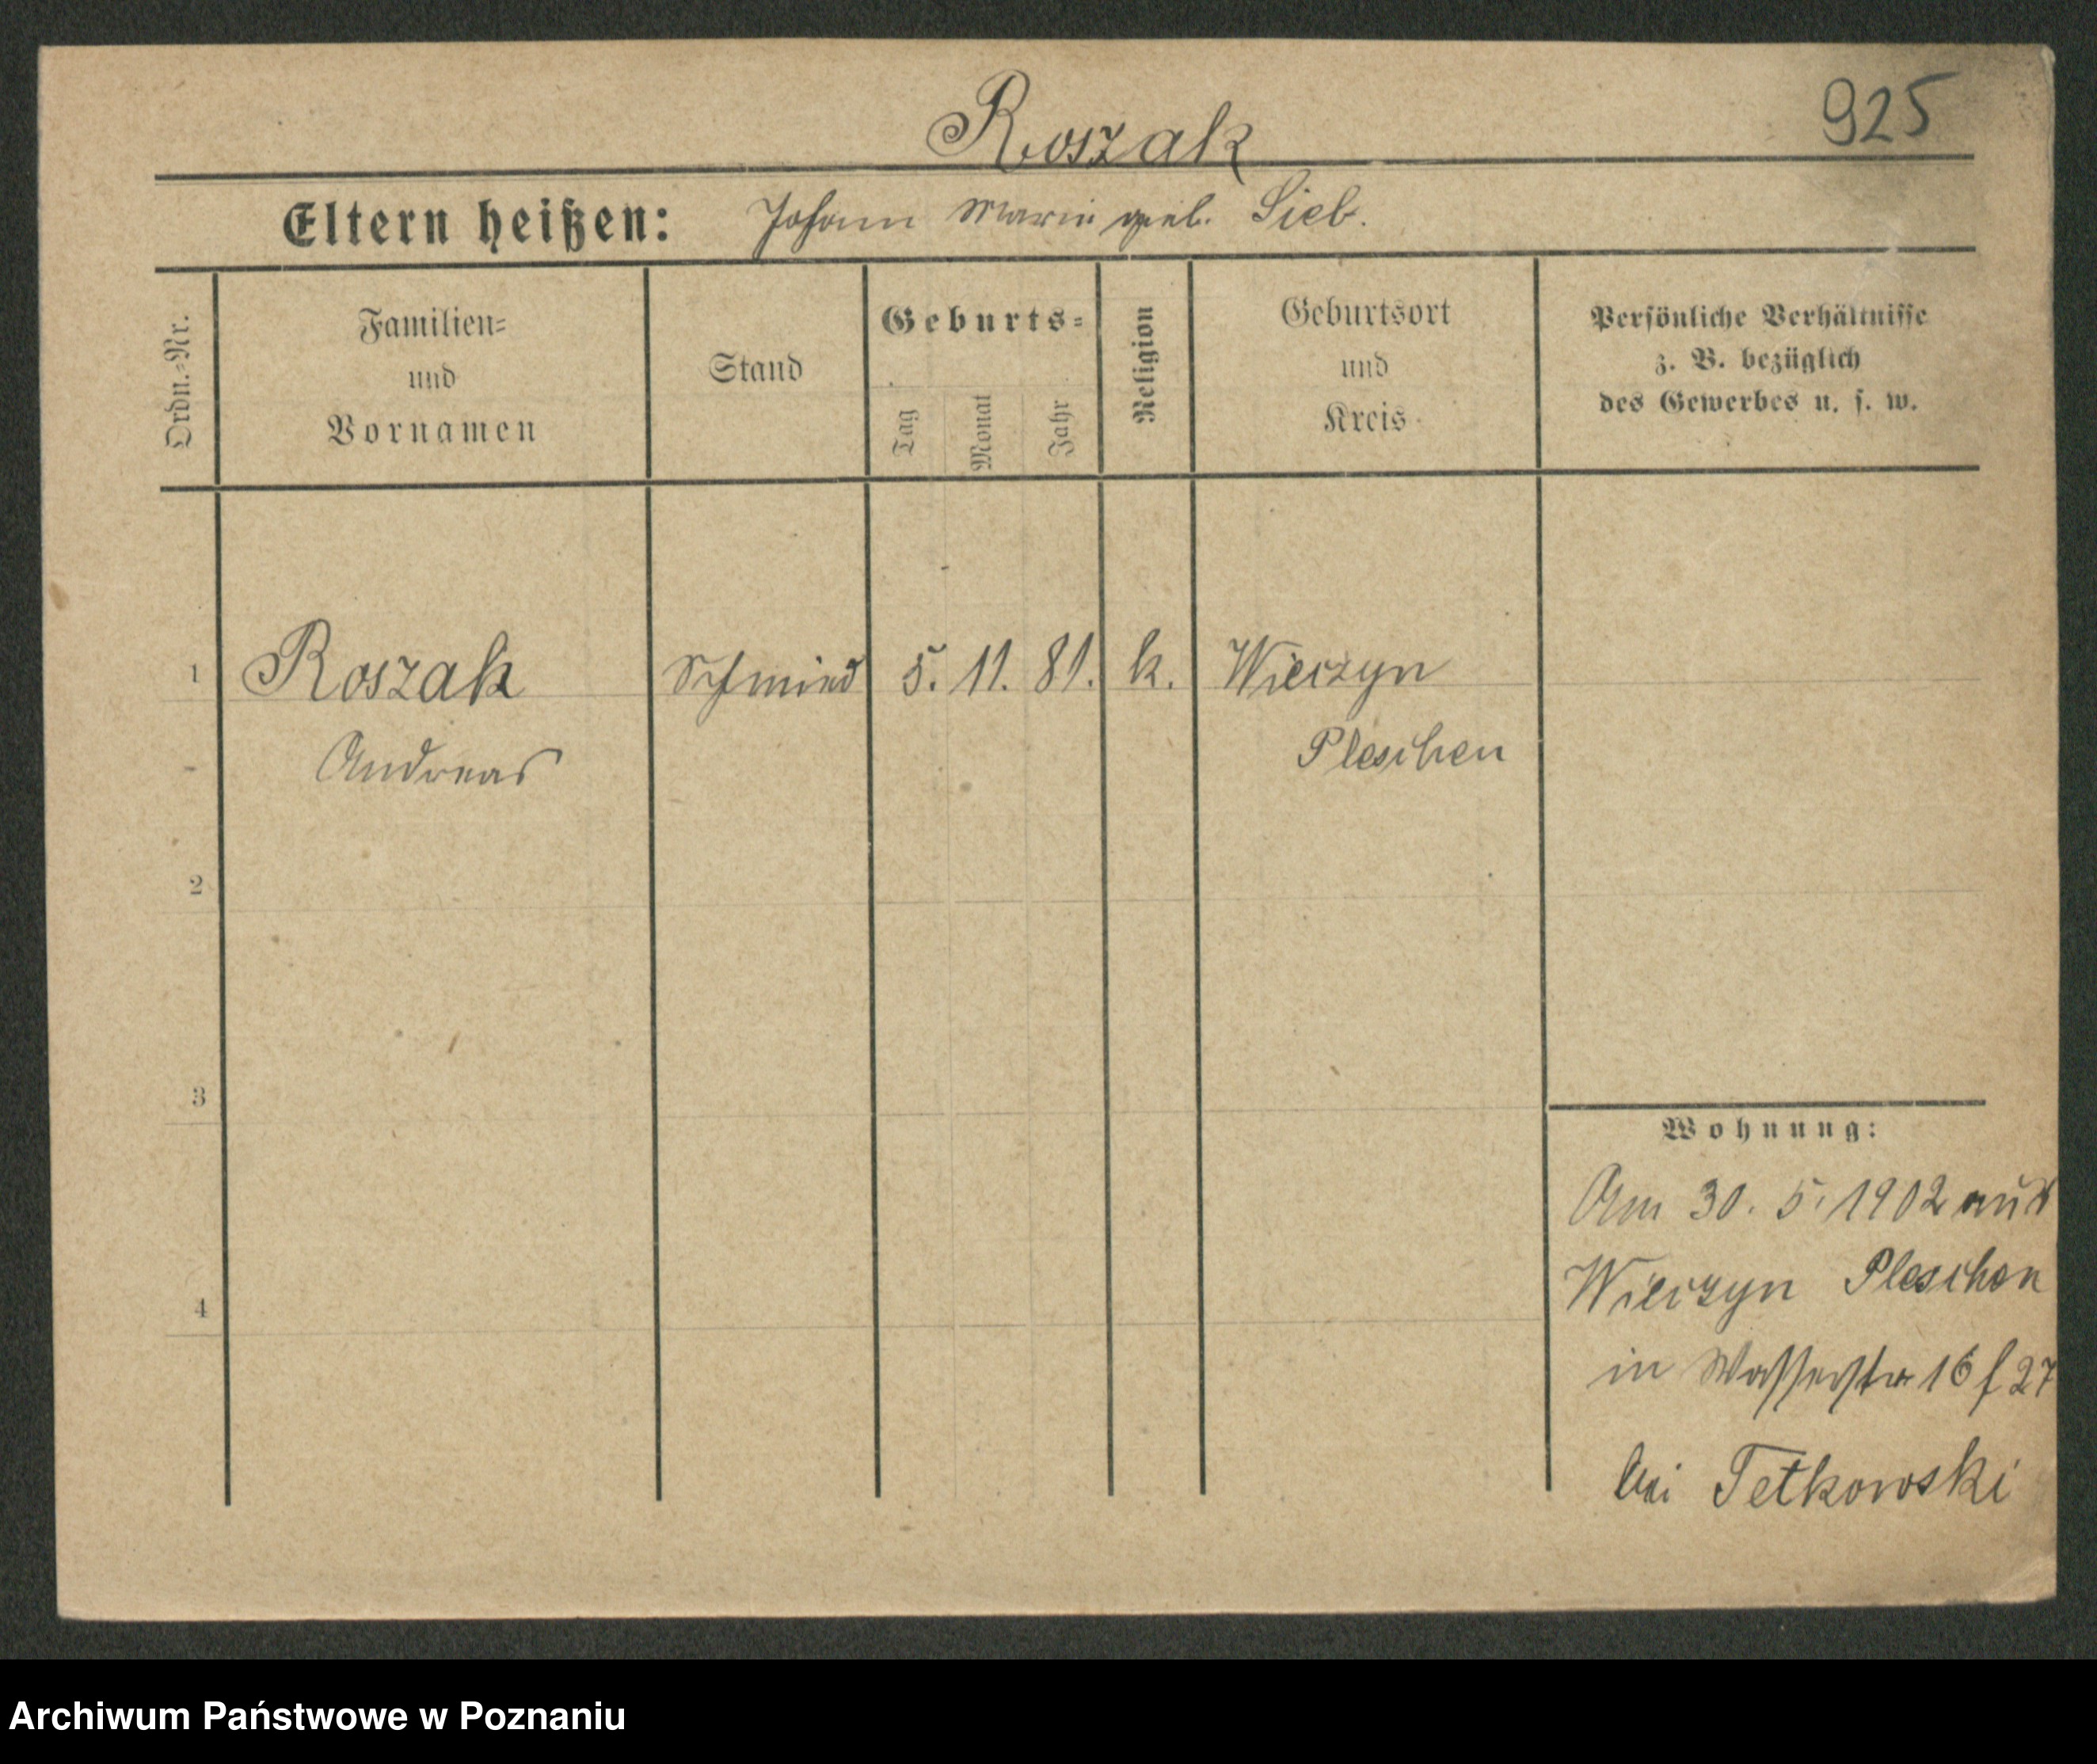 Roszak
925
Eltern heißen: Johann Marie geb. Sieb.
Ordn.=Nr.
Familien=
und
Vornamen
Stand
Geburts=
Tag
Monat
Jahr
Religion
Geburtsort
und
Kreis
Persönliche Verhältnisse
z. B. bezüglich
des Gewerbes u. s. w.
1 Roszak Schmied 5. 11. 81. k. Wieczyn
Andreas Pleschen
2
3
4
Wohnung:
Am 30. 5. 1902 aus
Wieczyn Pleschen
in Wasserstr 16 f 27
bei Tetkowski
Archiwum Państwowe w Poznaniu